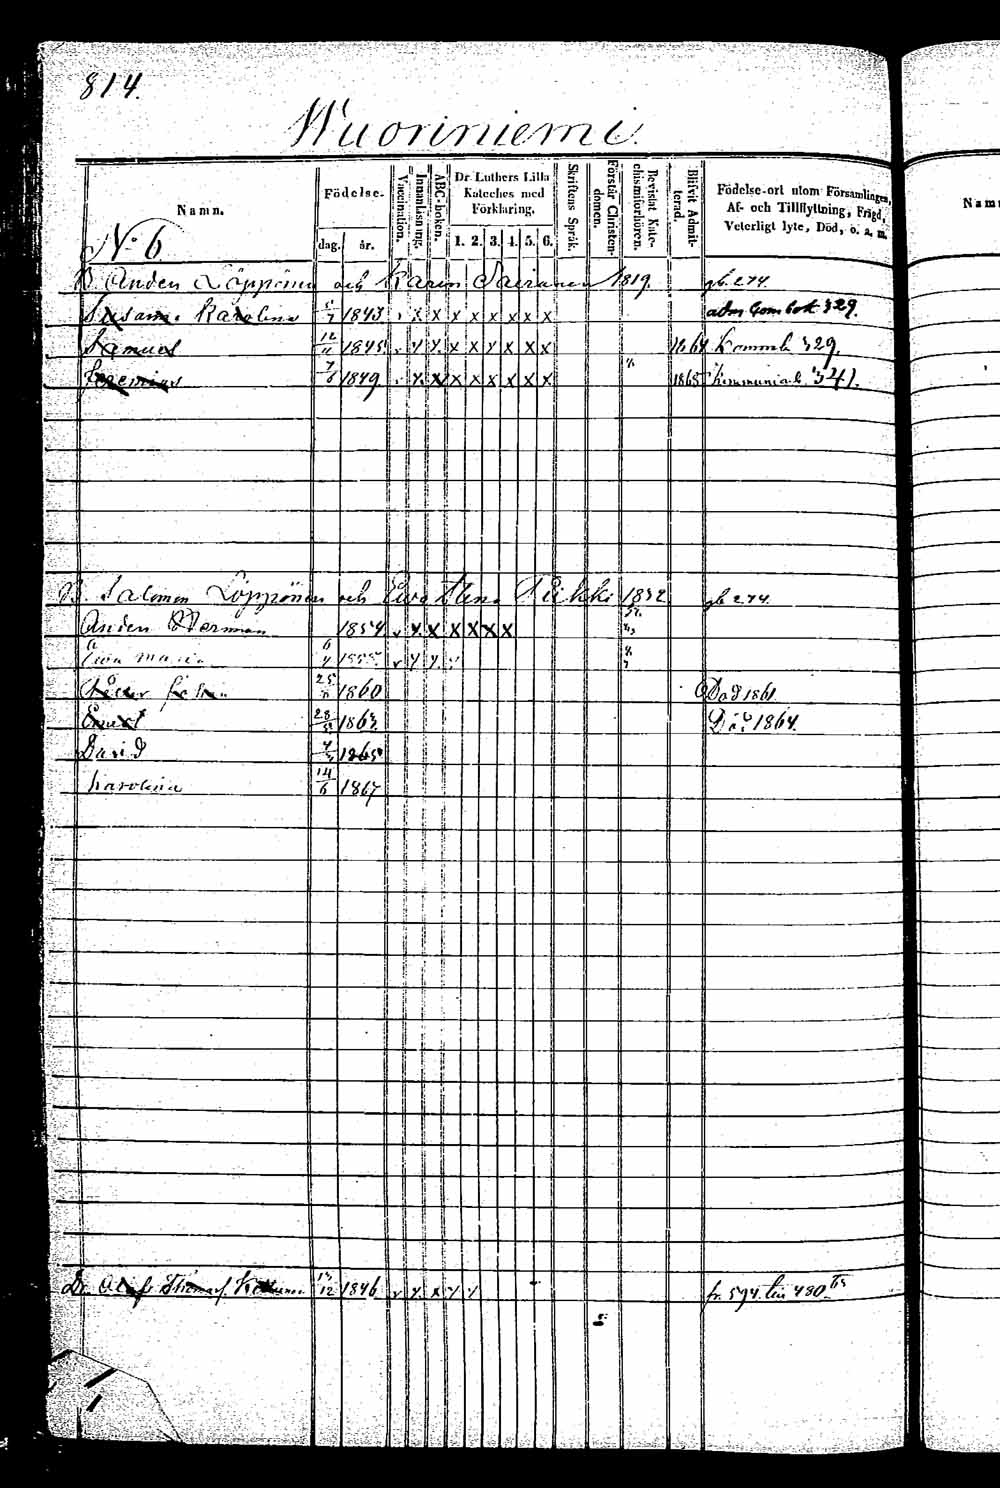 814.
Wuoriniemi.
Namn.
Födelse.
dag. år.
Vaccination.
Innanläsning.
ABC-boken.
Dr Luthers Lilla Kateches med Förklaring.
1. 2. 3. 4. 5. 6.
Skriftens Språk.
Förstår Christendomen.
Bevistat Katechismiförhören.
Blifvit Admitterad.
Födelse-ort utom Församlingen, Af- och Tillflyttning, Frägd, Veterligt lyte, Död, o. s. m.
Namn
No 6
B. Anders Löppönen och Karin Sairanen 1819. gb. 274.
Susanna Karolina 1843 x x x x x x x x adm Com bok 329.
Samuel 12/11 1845 x x x x x x x x 1864 Kommb 329.
Jeremias 1849. x x x x x x x x 1865 Kommunia b. 341.
B. Salomon Löppönen och Ewa Stina Pukki 1832 gb 274.
Anders Herman 1854 v x x x x x x
Ewa Maria 1855 v x x x
25 1860 Död 1861
28 1863 Död 1864.
David 1865
Karolina 14/6 1867
Dr. 12 1846 v x x x x fr. 594. 480.